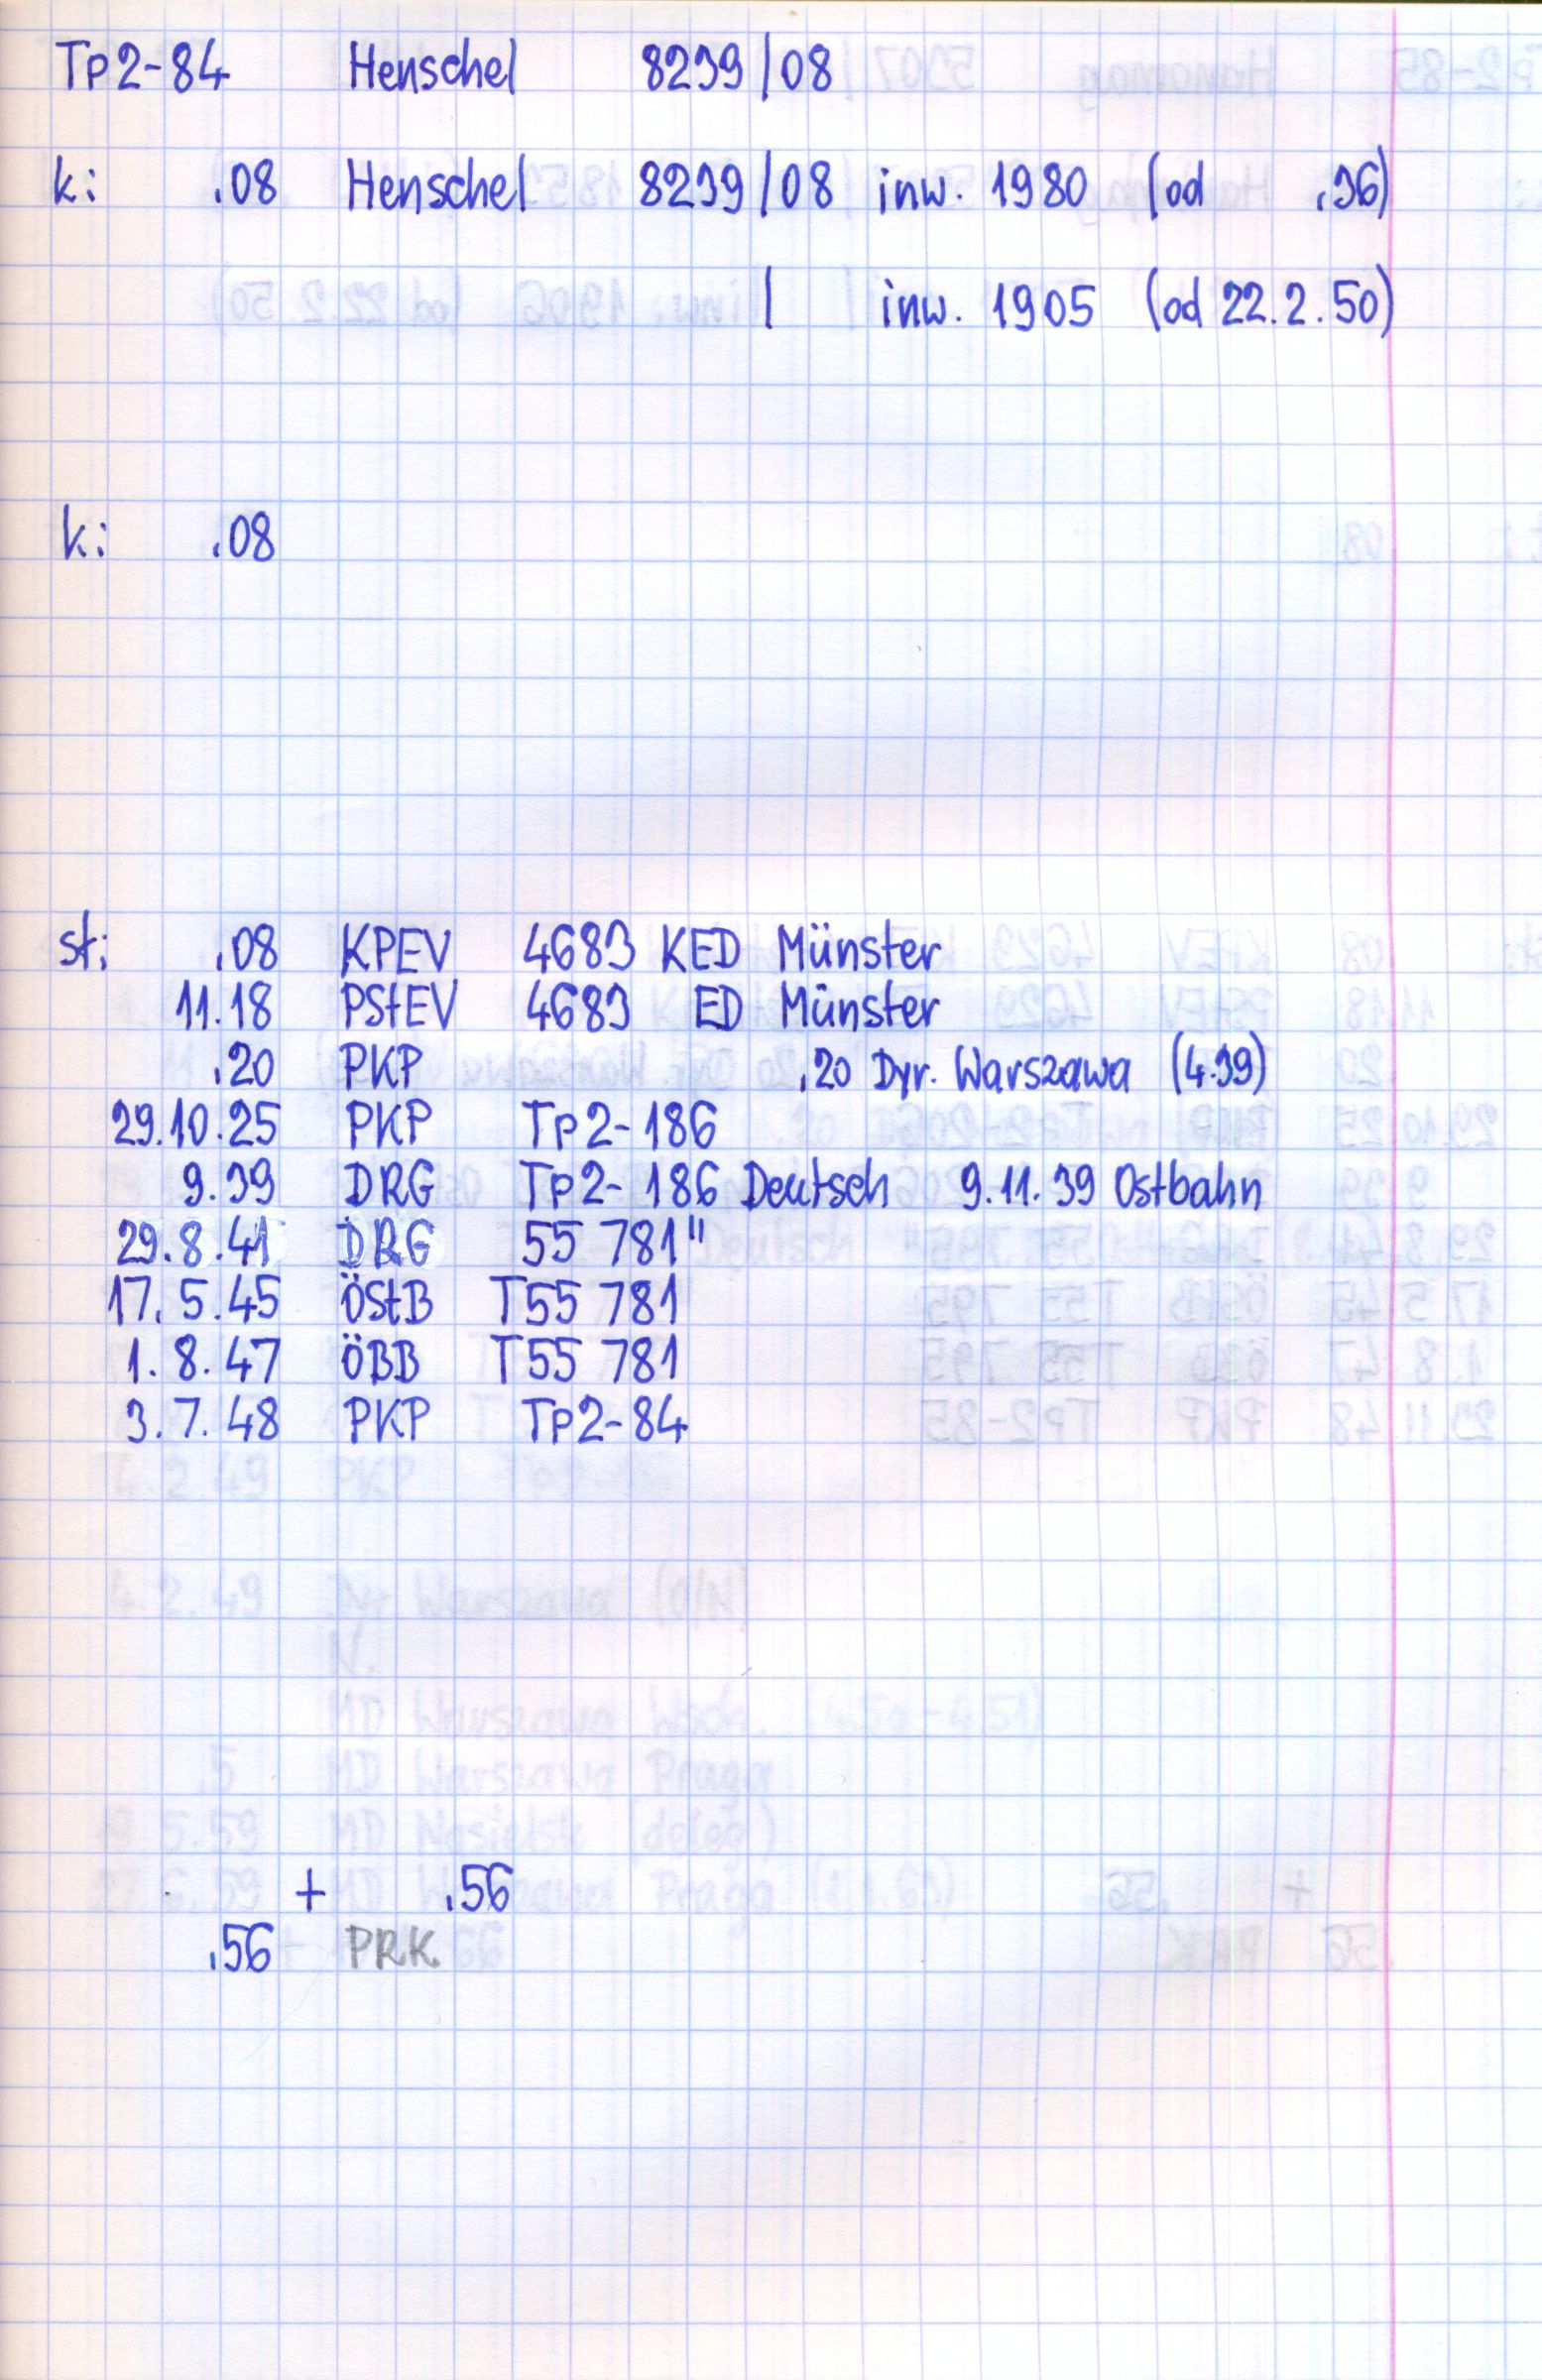 Tp2-84 Henschel 8239/08
k: .08 Henschel 8239/08 inw. 1980 (od .36)
/ inw. 1905 (od 22.2.50)
k: .08
st: .08 KPEV 4683 KED Münster
11.18 PStEV 4683 ED Münster
.20 PKP .20 Dyr. Warszawa (4.39)
29.10.25 PKP Tp2-186
9.39 DRG Tp2-186 Deutsch 9.11.39 Ostbahn
29.8.41 DRG 55 781"
17.5.45 ÖStB T55 781
1.8.47 ÖBB T55 781
3.7.48 PKP Tp2-84
+ .56
.56 PRK